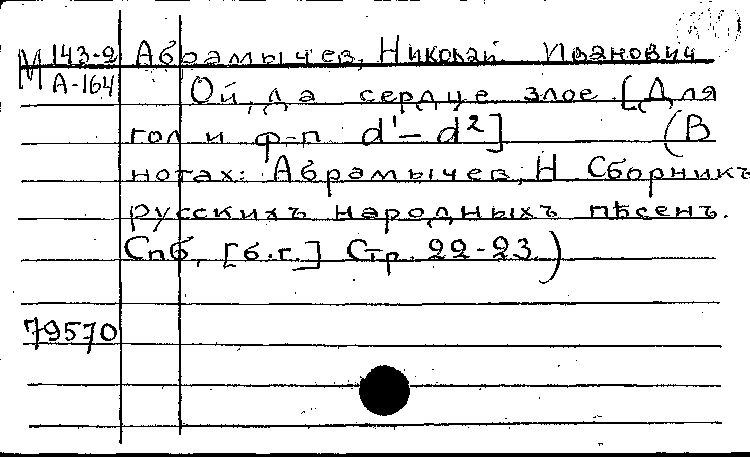 М 143-2 Абрамычев, Николай Иванович
А-164 Ой, да сердце злое. [Для
гол и ф-п d¹ – d²] (В
нотах: Абрамычев, Н Сборникъ
русскихъ народныхъ пѣсенъ.
Спб, [б.г.] Стр. 22-23.)
79570